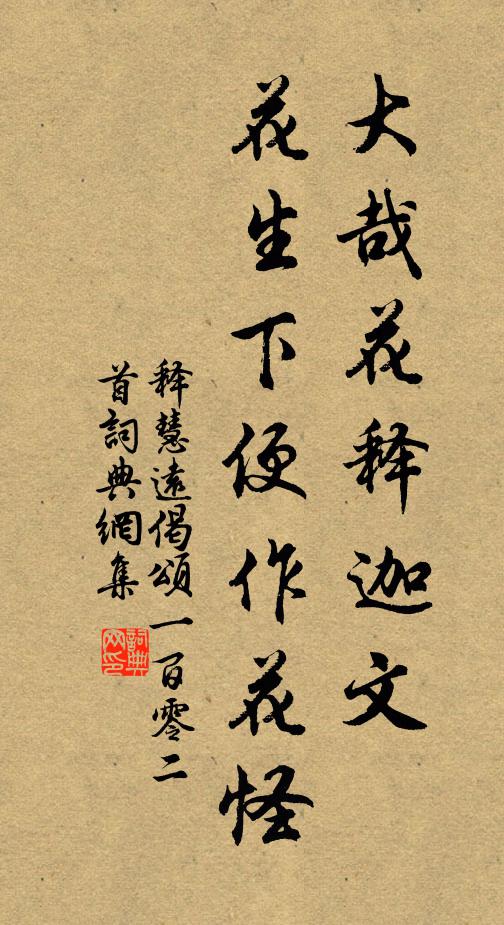 大哉花释迦文
花生下便作花怪
释慧遠偈頌一百零二
首詞典網集
詞典
网印